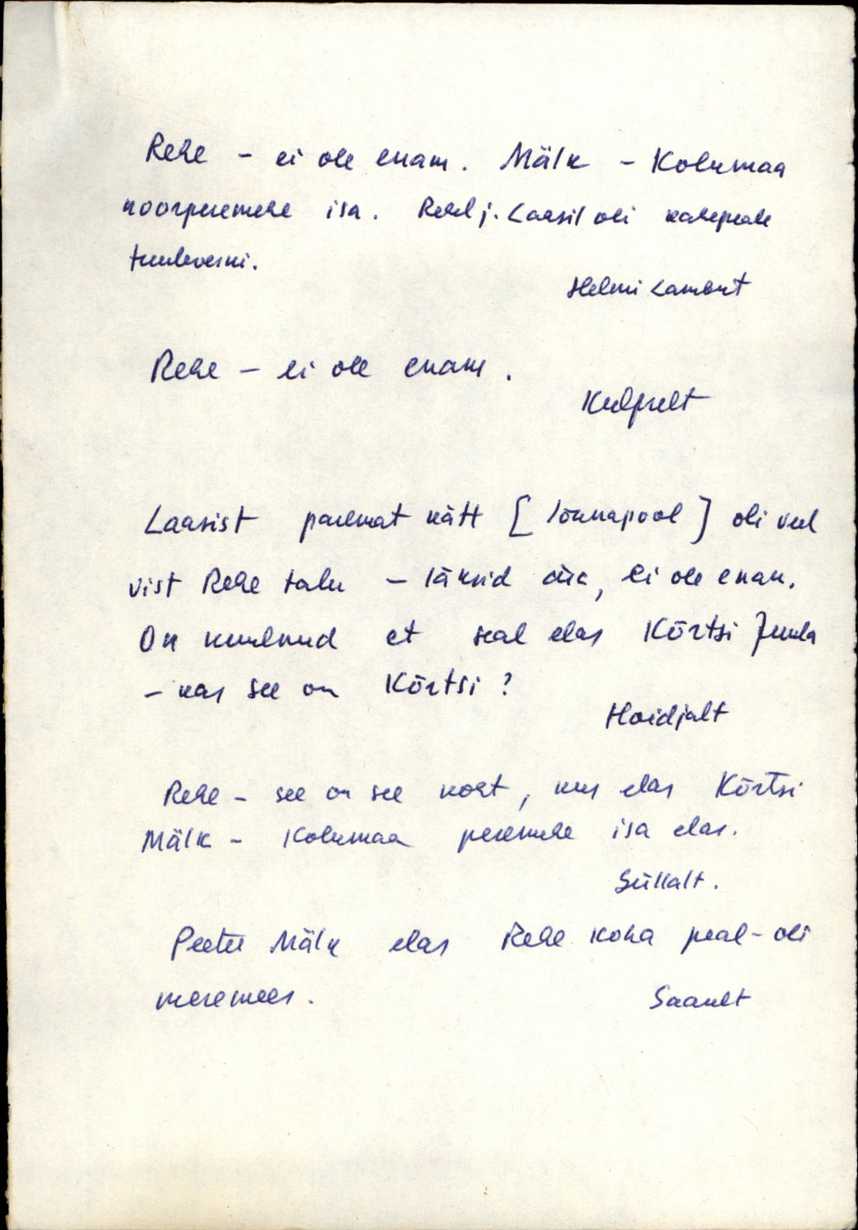 Rehe – ei ole enam. Mälk – Kolumaa
noorperemehe isa. Rehel j. Laasil oli kahepeale
tuuleveski.
Helmi Lambut
Rehe – ei ole enam.
Külpselt
Laasist paremat kätt [lõunapool] oli veel
vist Rehe talu – läksid ära, ei ole enam.
On kuulnud et seal elas Kõrtsi Juula
– kas see on Kõrtsi?
Hoidjalt
Rehe – see on see koht, kus elas Kõrtsi
Mälk – Kolumaa peremehe isa elas.
Siikalt.
Peeter Mälk elas Rehe koha peal – oli
meremees.
Saarelt